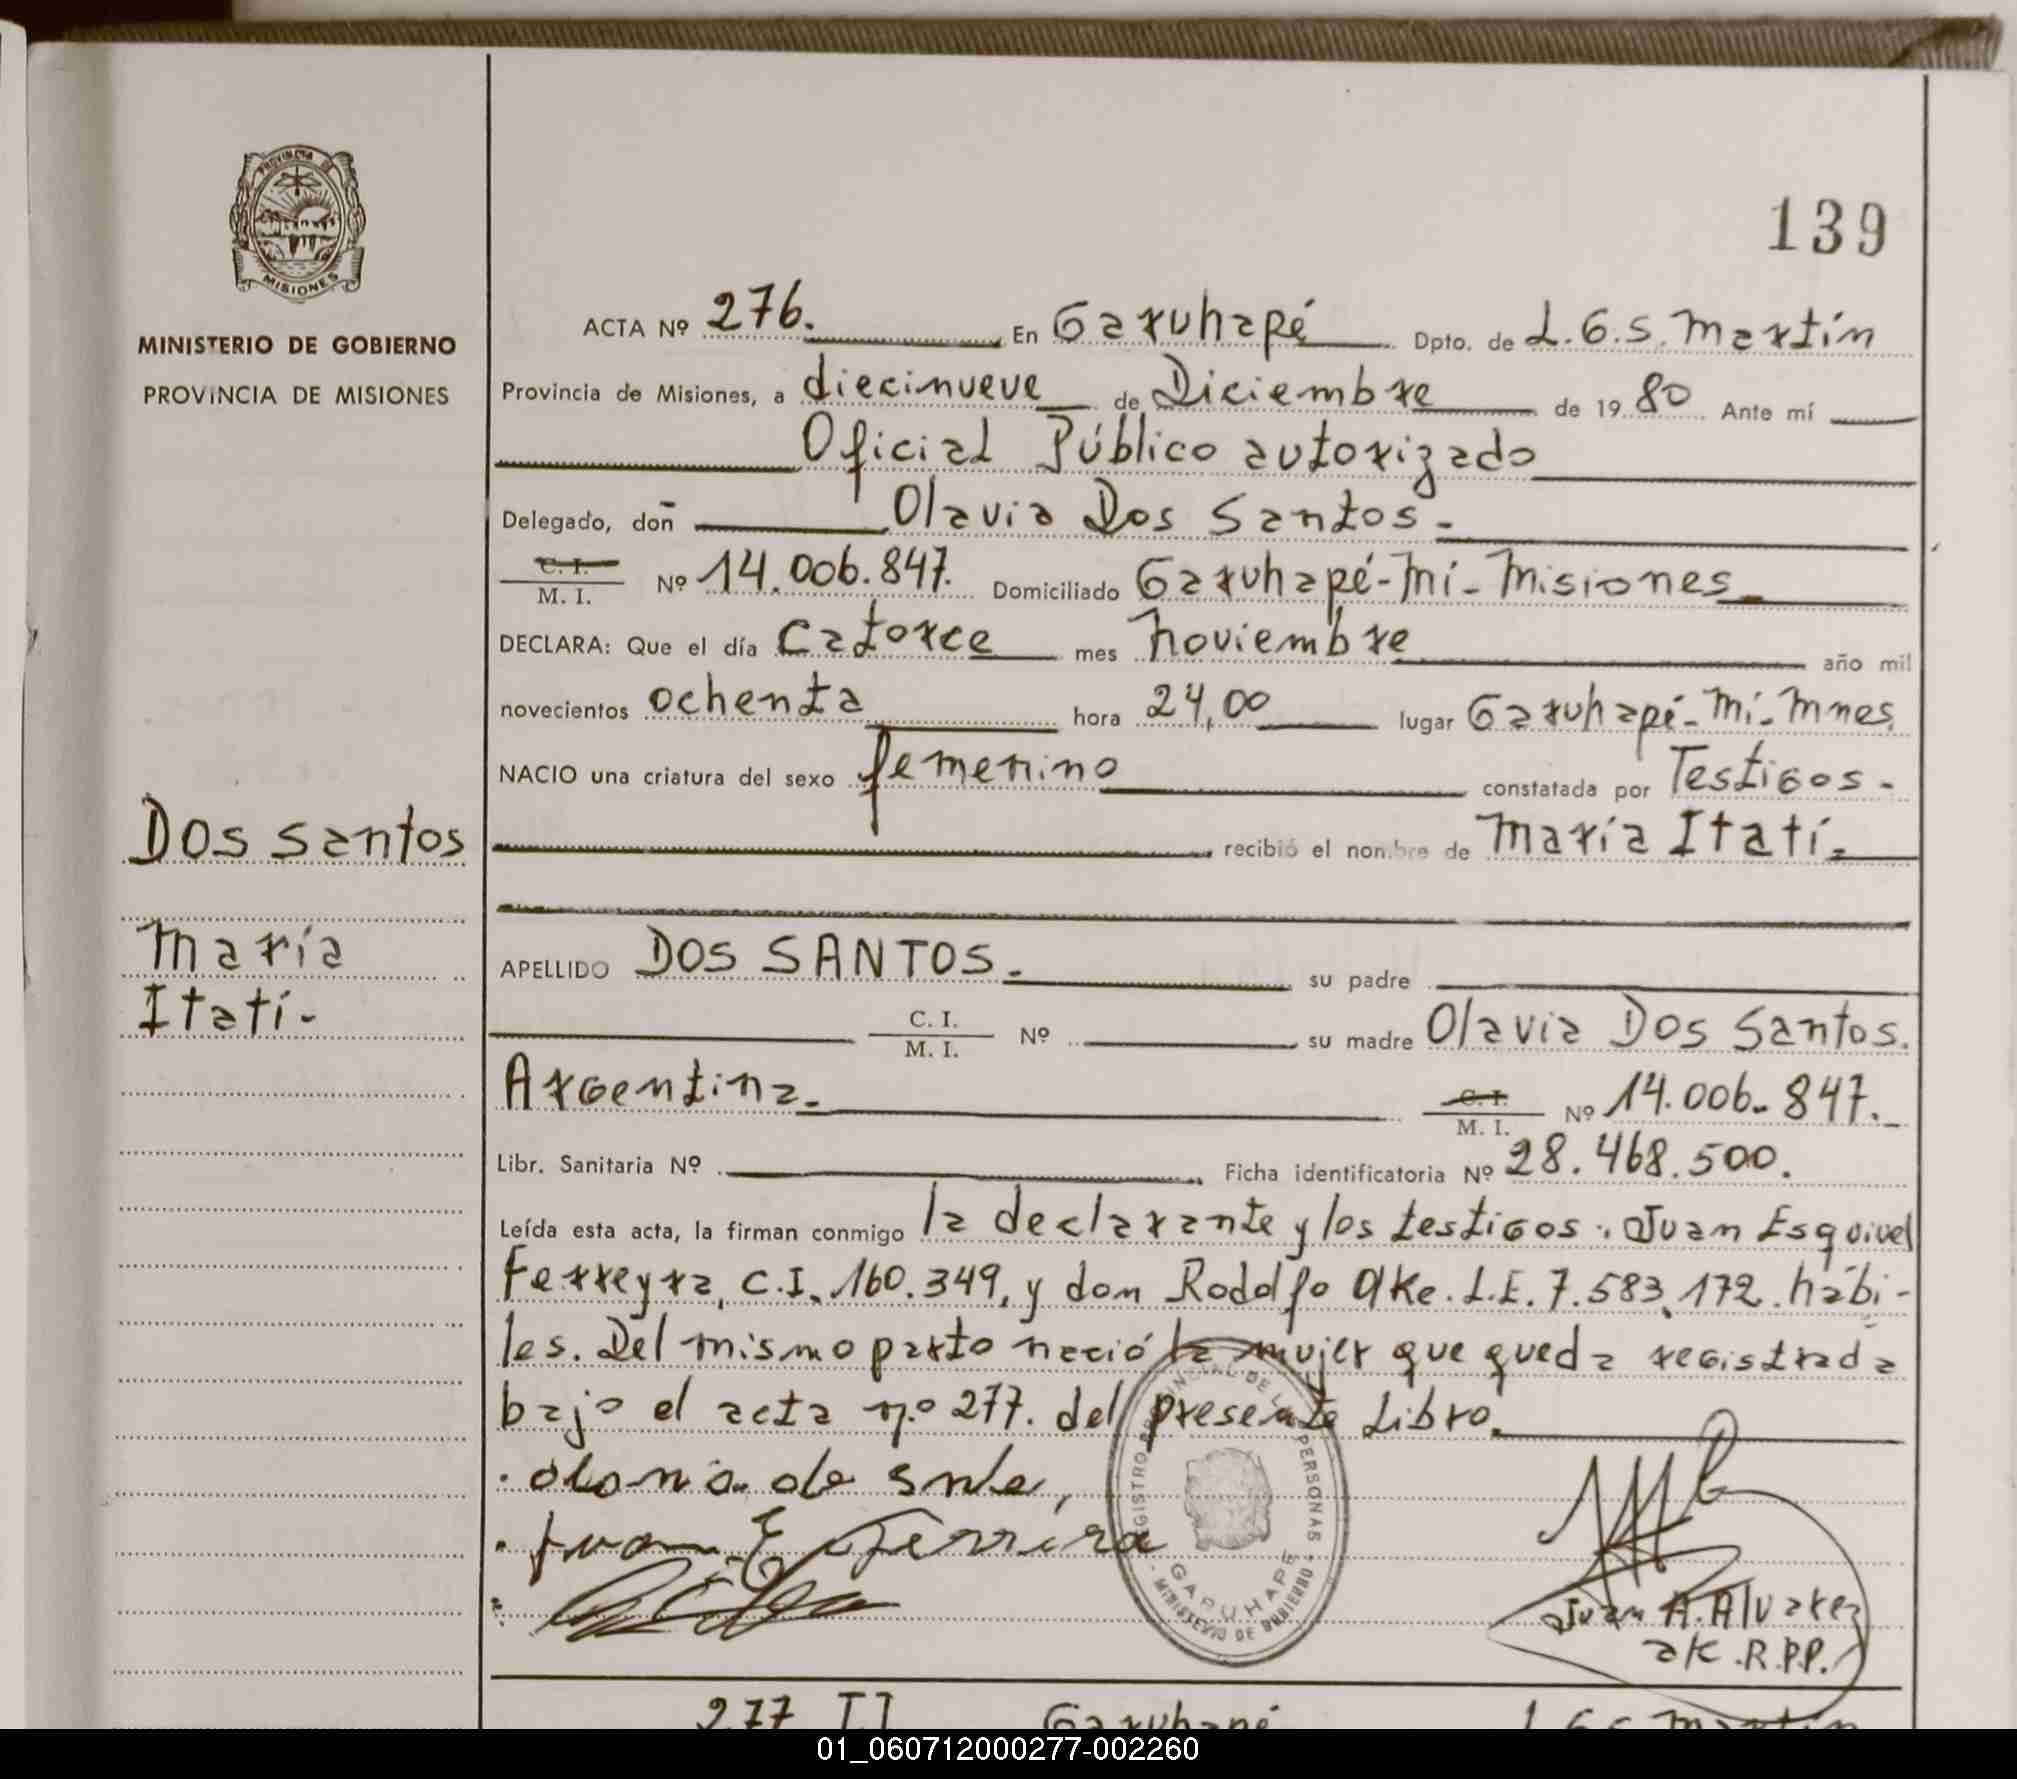 PROVINCIA DE
MISIONES
MINISTERIO DE GOBIERNO
PROVINCIA DE MISIONES
139
ACTA Nº 276. En Garuhapé Dpto. de L.G.S. Martín
Provincia de Misiones, a diecinueve de Diciembre de 19 80 Ante mí
Oficial Público autorizado
Delegado, don Olavia Dos Santos.
C. I.
M. I. Nº 14.006.847. Domiciliado Garuhapé-Mí-Misiones
DECLARA: Que el día Catorce mes Noviembre año mil
novecientos ochenta hora 24,00 lugar Garuhapé-Mí-Mnes.
NACIO una criatura del sexo femenino constatada por Testigos.
recibió el nombre de María Itatí.
Dos Santos
María
Itatí-
APELLIDO DOS SANTOS. su padre
C. I.
M. I. Nº su madre Olavia Dos Santos.
Argentina. C. I.
M. I. Nº 14.006.847.
Libr. Sanitaria Nº Ficha identificatoria Nº 28.468.500.
Leída esta acta, la firman conmigo la declarante y los testigos. Juan Esquivel
Ferreyra, C.I. 160.349, y don Rodolfo Ake. L.E. 7.583.172. hábi-
les. Del mismo parto nació la mujer que queda registrada
bajo el acta n.º 277. del presente Libro.
Juan E Ferreira
REGISTRO PROVINCIAL DE LAS PERSONAS
GARUHAPE
MINISTERIO DE GOBIERNO
Juan A. Alvarez
R.P.P.
277 II Garuhapé L.G.S. Martín
01_060712000277-002260